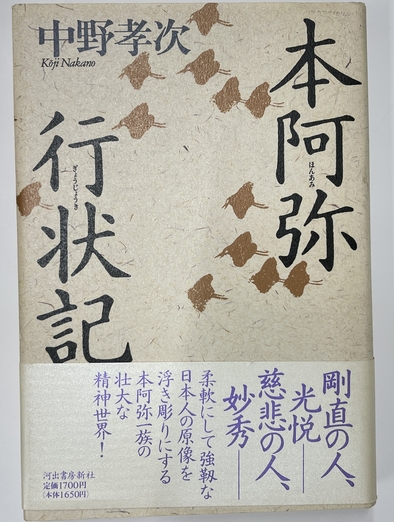 中野孝次
Kōji Nakano
本阿弥
ほんあみ
行状記
ぎょうじょうき
剛直の人、
光悦――
慈悲の人、
妙秀――
柔軟にして強靱な
日本人の原像を
浮き彫りにする
本阿弥一族の
壮大な
精神世界!
河出書房新社
定価1700円
(本体1650円)